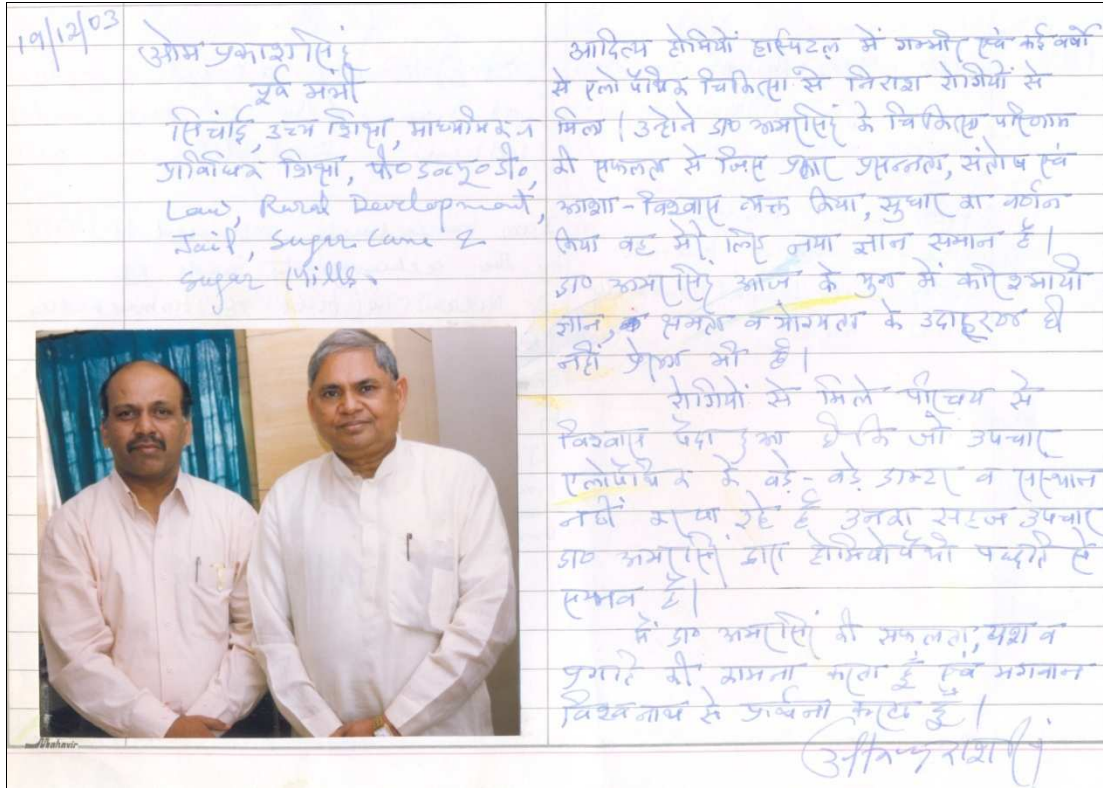 19/12/03
ओम प्रकाश सिंह
पूर्व मंत्री
सिंचाई, उच्च शिक्षा, माध्यमिक व
प्राविधिक शिक्षा, पी० डब्लू० डी०,
Law, Rural Development,
Jail, Sugar Cane &
Sugar Mills.
आदित्य होमियो हास्पिटल में गम्भीर एवं कई वर्षो
से एलोपैथिक चिकित्सा से निराश रोगियों से
मिला। उन्होने डा० अमरसिंह के चिकित्सा परिणाम
की सफलता से जिस प्रकार प्रसन्नता, संतोष एवं
आशा-विश्वास व्यक्त किया, सुधार का वर्णन
किया वह मेरे लिए नया ज्ञान समान है।
डा० अमरसिंह आज के युग में करिश्मायी
ज्ञान, क्षमता व योग्यता के उदाहरण ही
नहीं प्रेरणा भी हैं।
रोगियों से मिले परिचय से
विश्वास पैदा हुआ है कि जो उपचार
एलोपैथिक के बड़े-बड़े डाक्टर व संस्थान
नहीं कर पा रहे हैं उनका सहज उपचार
डा० अमरसिंह द्वारा होमियोपैथी पद्धति से
सम्भव है।
मैं डा० अमरसिंह की सफलता, यश व
प्रगति की कामना करता हूँ एवं भगवान
विश्वनाथ से प्रार्थना करता हूँ।
ओम प्रकाश सिंह
Mahavir